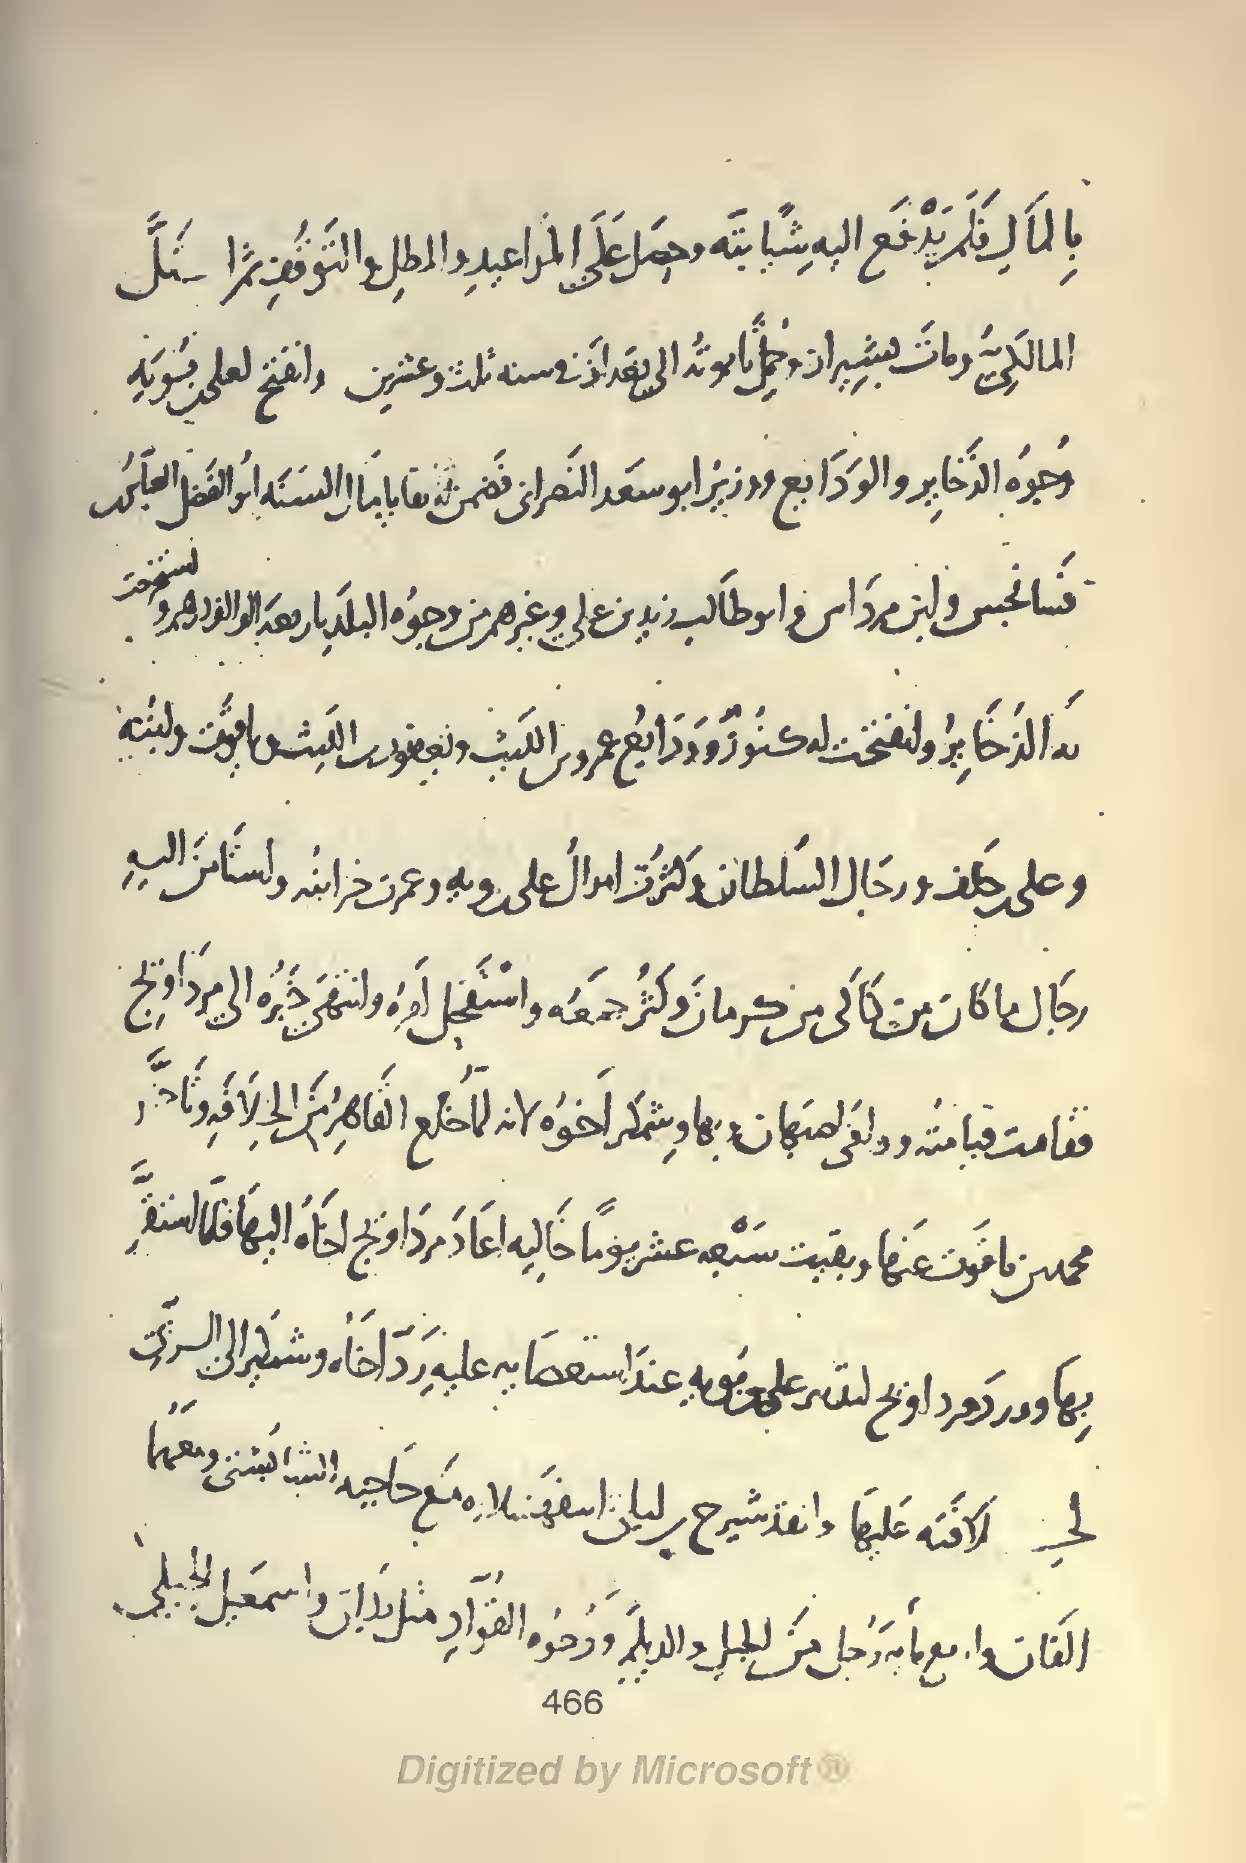 بِالمَالِ فَلَم يَدْفَع اليه شَيًا بتَّه وحصَل عَلَى المواعيدِ والمطلِ والتَوقّفِ ثمرا
المالكيّه ومات بشيراز وحُمِلَ تابوتُه الى بغَداذ فى سنه ثلث وعشرين وانفتح لعلى بن بُوَيَه
وُجوُه الذَّخَايرِ والوَدَايع ووزيرُ ابو سعَد النَصرانى فضَمن بقايا مال السنَه ابو الفضل العبّاس بن
فسانجس وابن مردَاس وابو طالب زيد بن على وغيرهم من وجوُه البلَد باربعَه الف الف درهم واستخرجت
له الذخَايرُ وانفتحت له كنُوزٌ ووَدَايعُ عمرو بن الليث ويعقوب بن الليث وياقوت وابنه
وعلى بن خلف ورجَال السُلطان وكثُرت اموالُ على بن بويه وعمرت خزاينُه واستَامَن اليهِ
رجَال ما كان بن كَاكى من كرمان وكثُر جمعَه واسْتَفحل امرُه وانتهَى خبرُه الى مردَاويج
فقامت قيامتُه ووافى اصبهان وبها وشمكير اخوُه لانه لمّا خُلع القاهِرُ من الخلَافَه وتَاخّر
محمد بن ياقوت عنها وبقيت سَبْعه عشر يومًا خَاليه اعَادَ مردَاويج اخَاهُ اليهَا فلمّا استقرّ
بها وورد مرداويج لتدبير على بن بويه عند استعصَايه عليه رَدَّ اخَاه وشمكير الى الرىّ
لخلافته عَليها وانفذ شيرج بن ليلى اسفهسلاره مع حَاجبه الشابشتى ومعهُمَا
الفان واربع مأيه رَجُل من الجيل والديلم وَوُجوُه القُوّادِ مثل بكران واسمعيل الجيلى
466
Digitized by Microsoft®